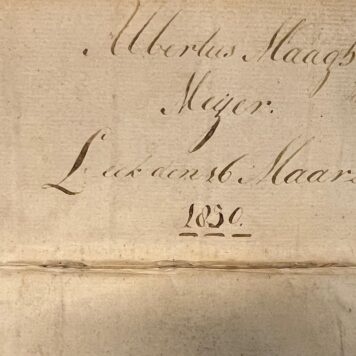 Albertus Maagh
Meijer.
Leek den 16 Maar
1850.